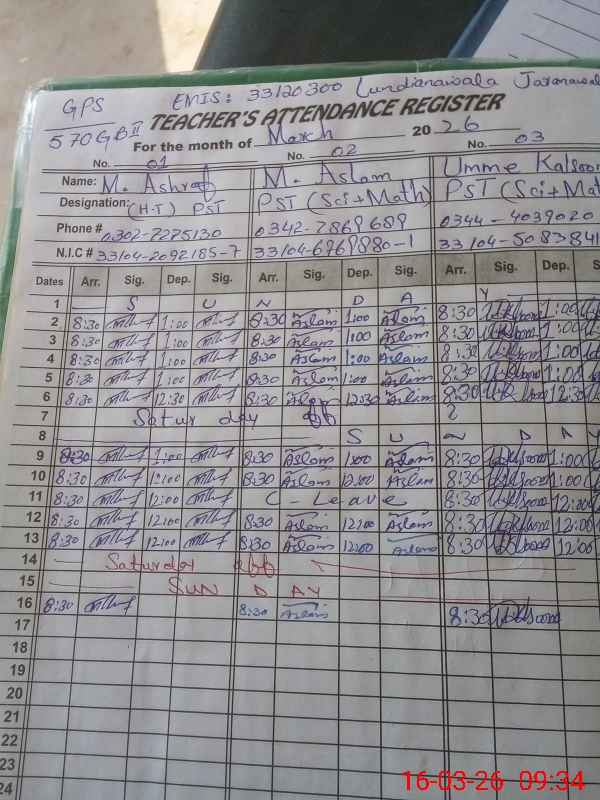 GPS EMIS: 33120300 Lundianawala Jaranawala
570GB II TEACHER'S ATTENDANCE REGISTER
For the month of March 2026
No. 01 No. 02 No. 03
Name: M. Ashraf M. Aslam Umme Kalsoom
Designation: (H-T) PST PST (Sci+Math) PST (Sci+Mat
Phone # 0302-7275130 0342-7869689 0344-4039020
N.I.C # 33104-2092185-7 33104-6969880-1 33104-5083841
Dates Arr. Sig. Dep. Sig. Arr. Sig. Dep. Sig. Arr. Sig. Dep.
1 S U N D A Y
2 8:30 1:00 8:30 Aslam 1:00 Aslam 8:30 1:00
3 8:30 1:00 8:30 Aslam 1:00 Aslam 8:30 1:00
4 8:30 1:00 8:30 Aslam 1:00 Aslam 8:30 1:00
5 8:30 1:00 8:30 Aslam 1:00 Aslam 8:30 1:00
6 8:30 12:30 8:30 Aslam 12:30 Aslam 8:30 12:30
7 Satur day off
8 S U N D A Y
9 8:30 1:00 8:30 Aslam 1:00 Aslam 8:30 1:00
10 8:30 12:00 8:30 Aslam 12:00 Aslam 8:30 1:00
11 8:30 12:00 C - Leave 8:30 12:00
12 8:30 12:00 8:30 Aslam 12:00 Aslam 8:30 12:00
13 8:30 12:00 8:30 Aslam 12:00 Aslam 8:30 12:00
14 Saturday off
15 SUN D AY
16 8:30 8:30 Aslam 8:30
17
18
19
20
21
22
23
24
16-03-26 09:34